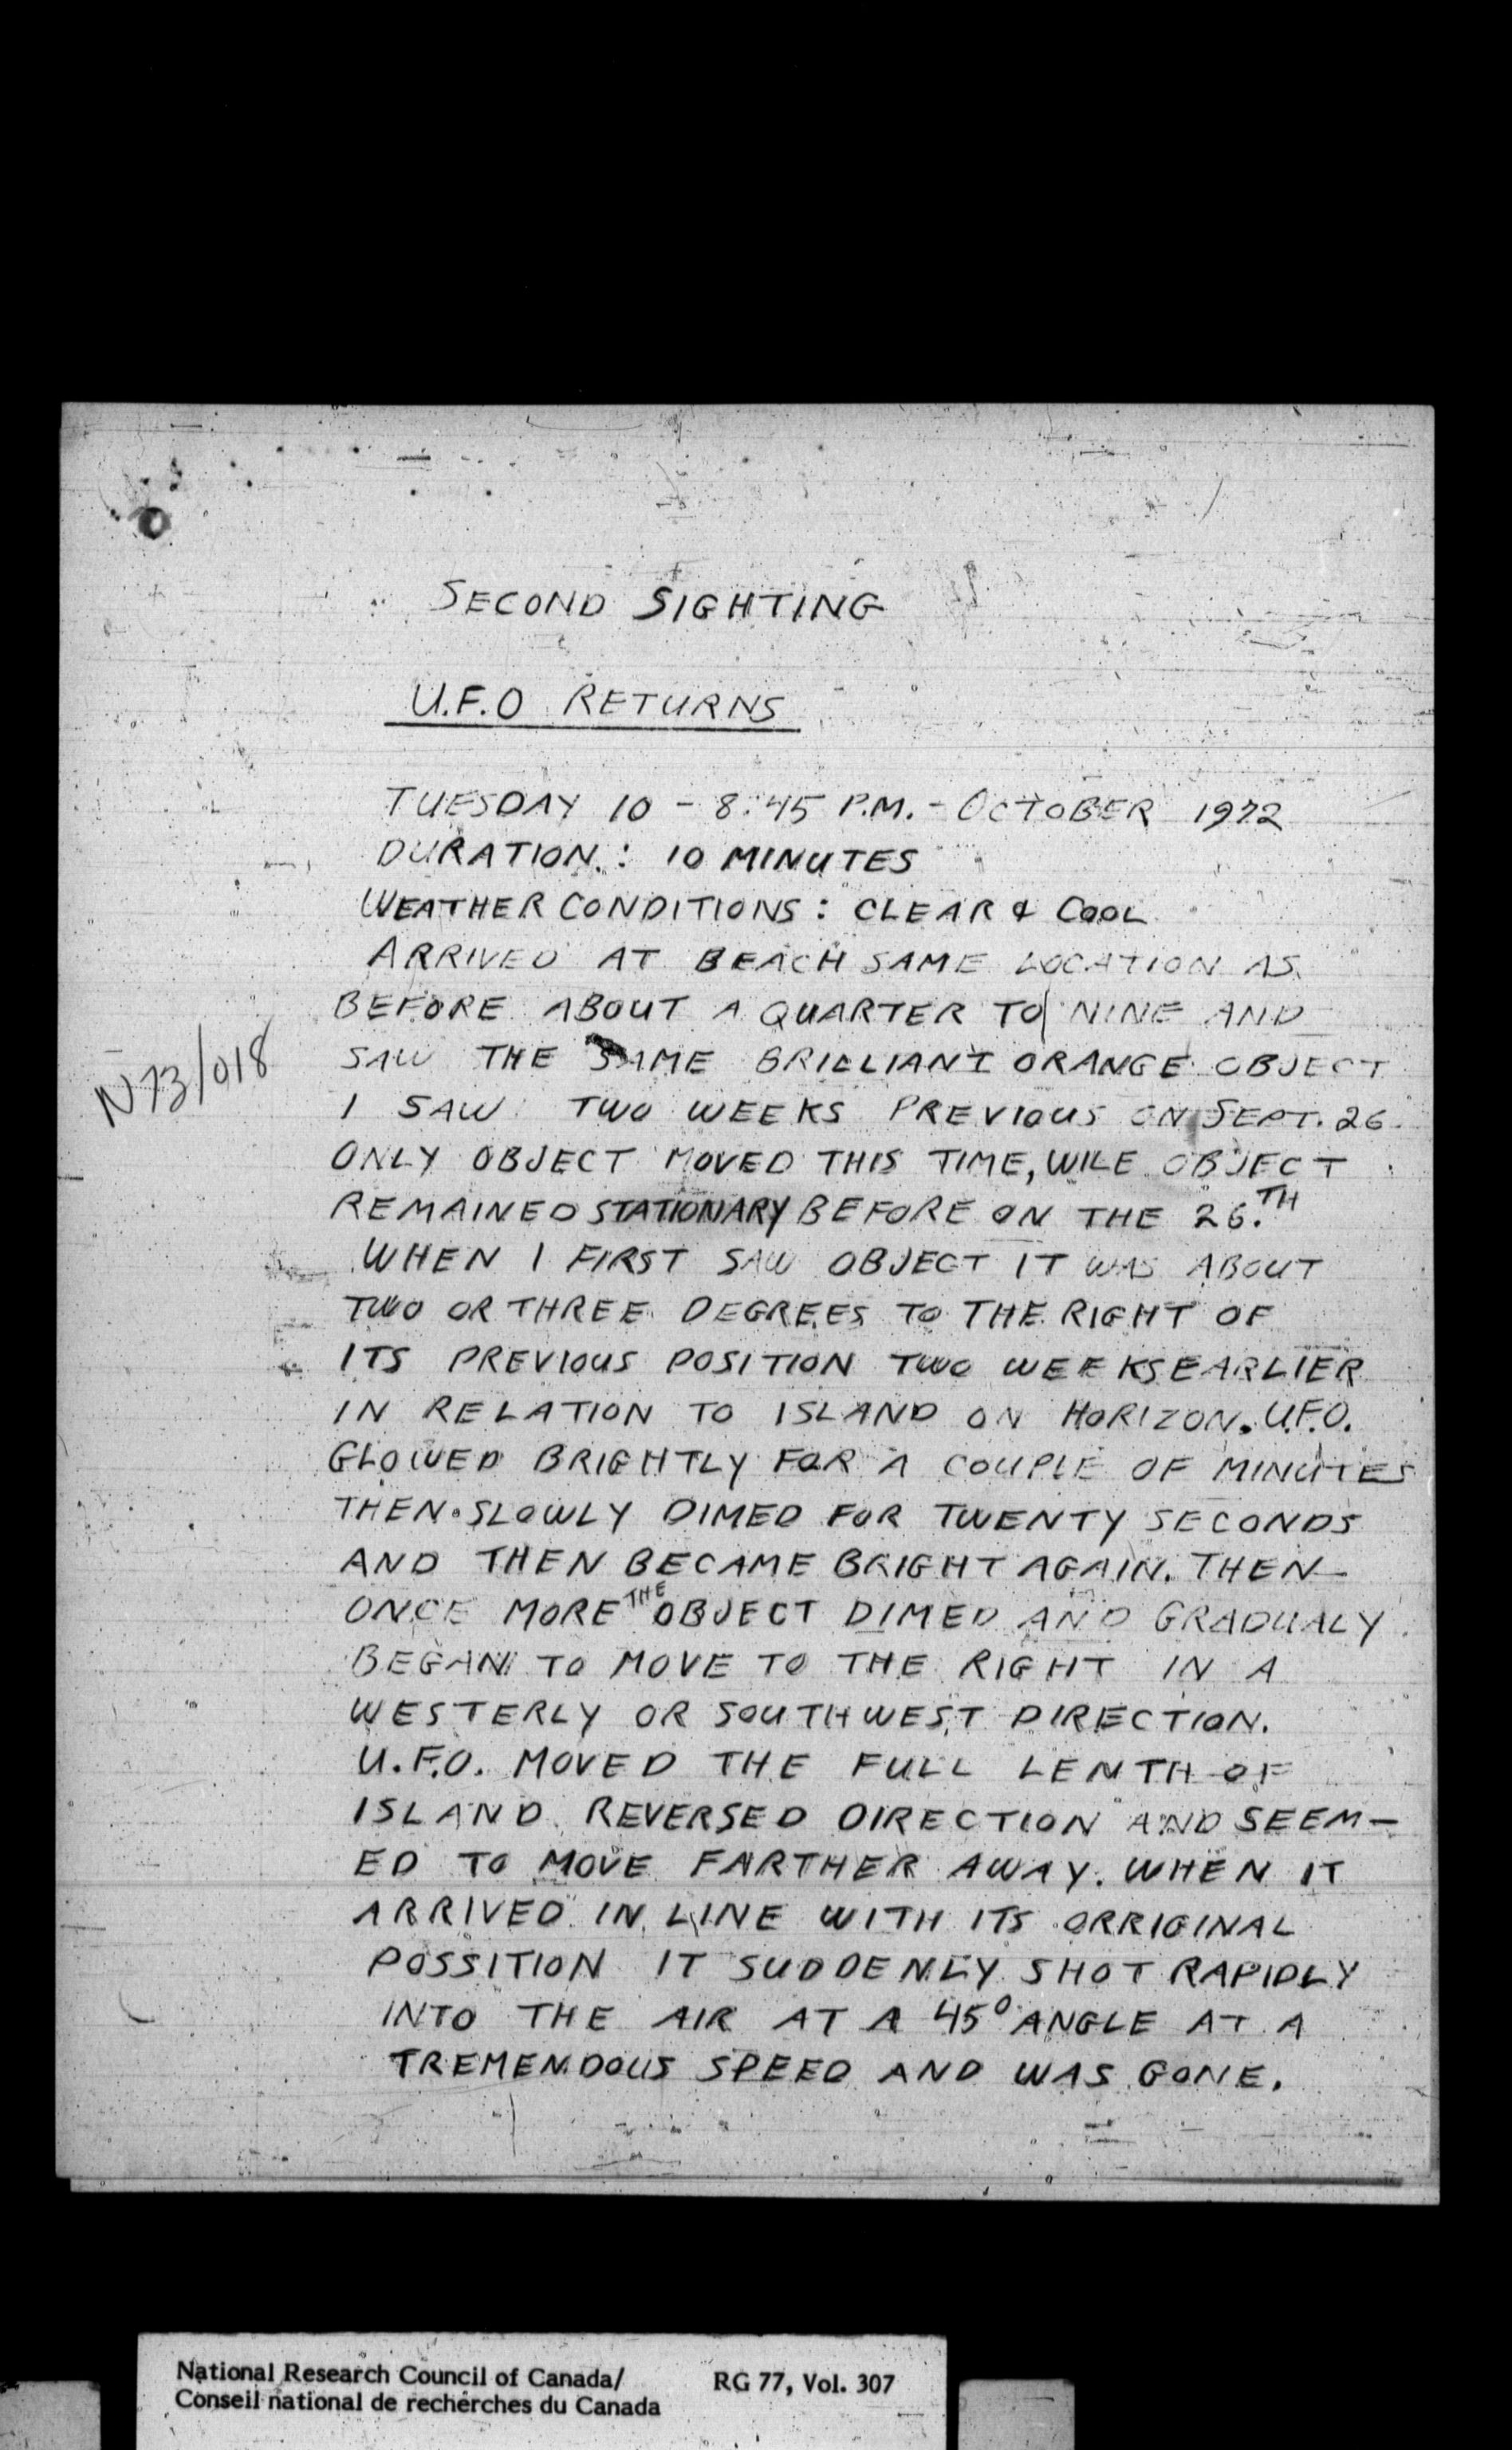 SECOND SIGHTING
U.F.O RETURNS
TUESDAY 10 - 8:45 P.M. - OCTOBER 1972
DURATION: 10 MINUTES
WEATHER CONDITIONS: CLEAR & COOL
ARRIVED AT BEACH SAME LOCATION AS
BEFORE ABOUT A QUARTER TO NINE AND
SAW THE SAME BRILLIANT ORANGE OBJECT
I SAW TWO WEEKS PREVIOUS ON SEPT. 26
ONLY OBJECT MOVED THIS TIME, WILE OBJECT
REMAINED STATIONARY BEFORE ON THE 26.TH
WHEN I FIRST SAW OBJECT IT WAS ABOUT
TWO OR THREE DEGREES TO THE RIGHT OF
ITS PREVIOUS POSITION TWO WEEKS EARLIER
IN RELATION TO ISLAND ON HORIZON. U.F.O.
GLOWED BRIGHTLY FOR A COUPLE OF MINUTES
THEN SLOWLY DIMED FOR TWENTY SECONDS
AND THEN BECAME BRIGHT AGAIN. THEN
ONCE MORE THE OBJECT DIMED AND GRADUALY
BEGAN TO MOVE TO THE RIGHT IN A
WESTERLY OR SOUTHWEST DIRECTION.
U.F.O. MOVED THE FULL LENTH OF
ISLAND REVERSED DIRECTION AND SEEM-
ED TO MOVE FARTHER AWAY. WHEN IT
ARRIVED IN LINE WITH ITS ORRIGINAL
POSSITION IT SUDDENLY SHOT RAPIDLY
INTO THE AIR AT A 45° ANGLE AT A
TREMENDOUS SPEED AND WAS GONE.
N73/018
National Research Council of Canada/ RG 77, Vol. 307
Conseil national de recherches du Canada